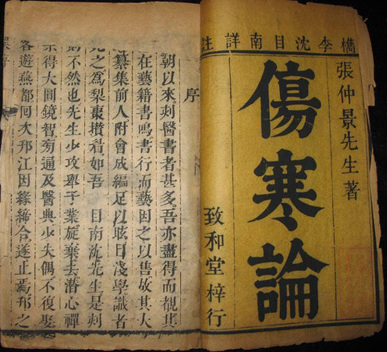 檇李沈目南詳註
張仲景先生著
傷寒論
致和堂梓行
序
朝以來刻醫書者甚多吾亦盡得而觀其
在藝籍書鳴書行而藝因之以售故其大
纂集前人附會成編足以眩目淺學識者
見之為梨棗攢眉如吾 目南沈先生是刻
則不然也先生少攻舉子業旋棄去潛心禪
宗得大圓鏡智旁通及醫典少失偶不復娶
客遊燕都回邗江因緣締合遂止焉邗之